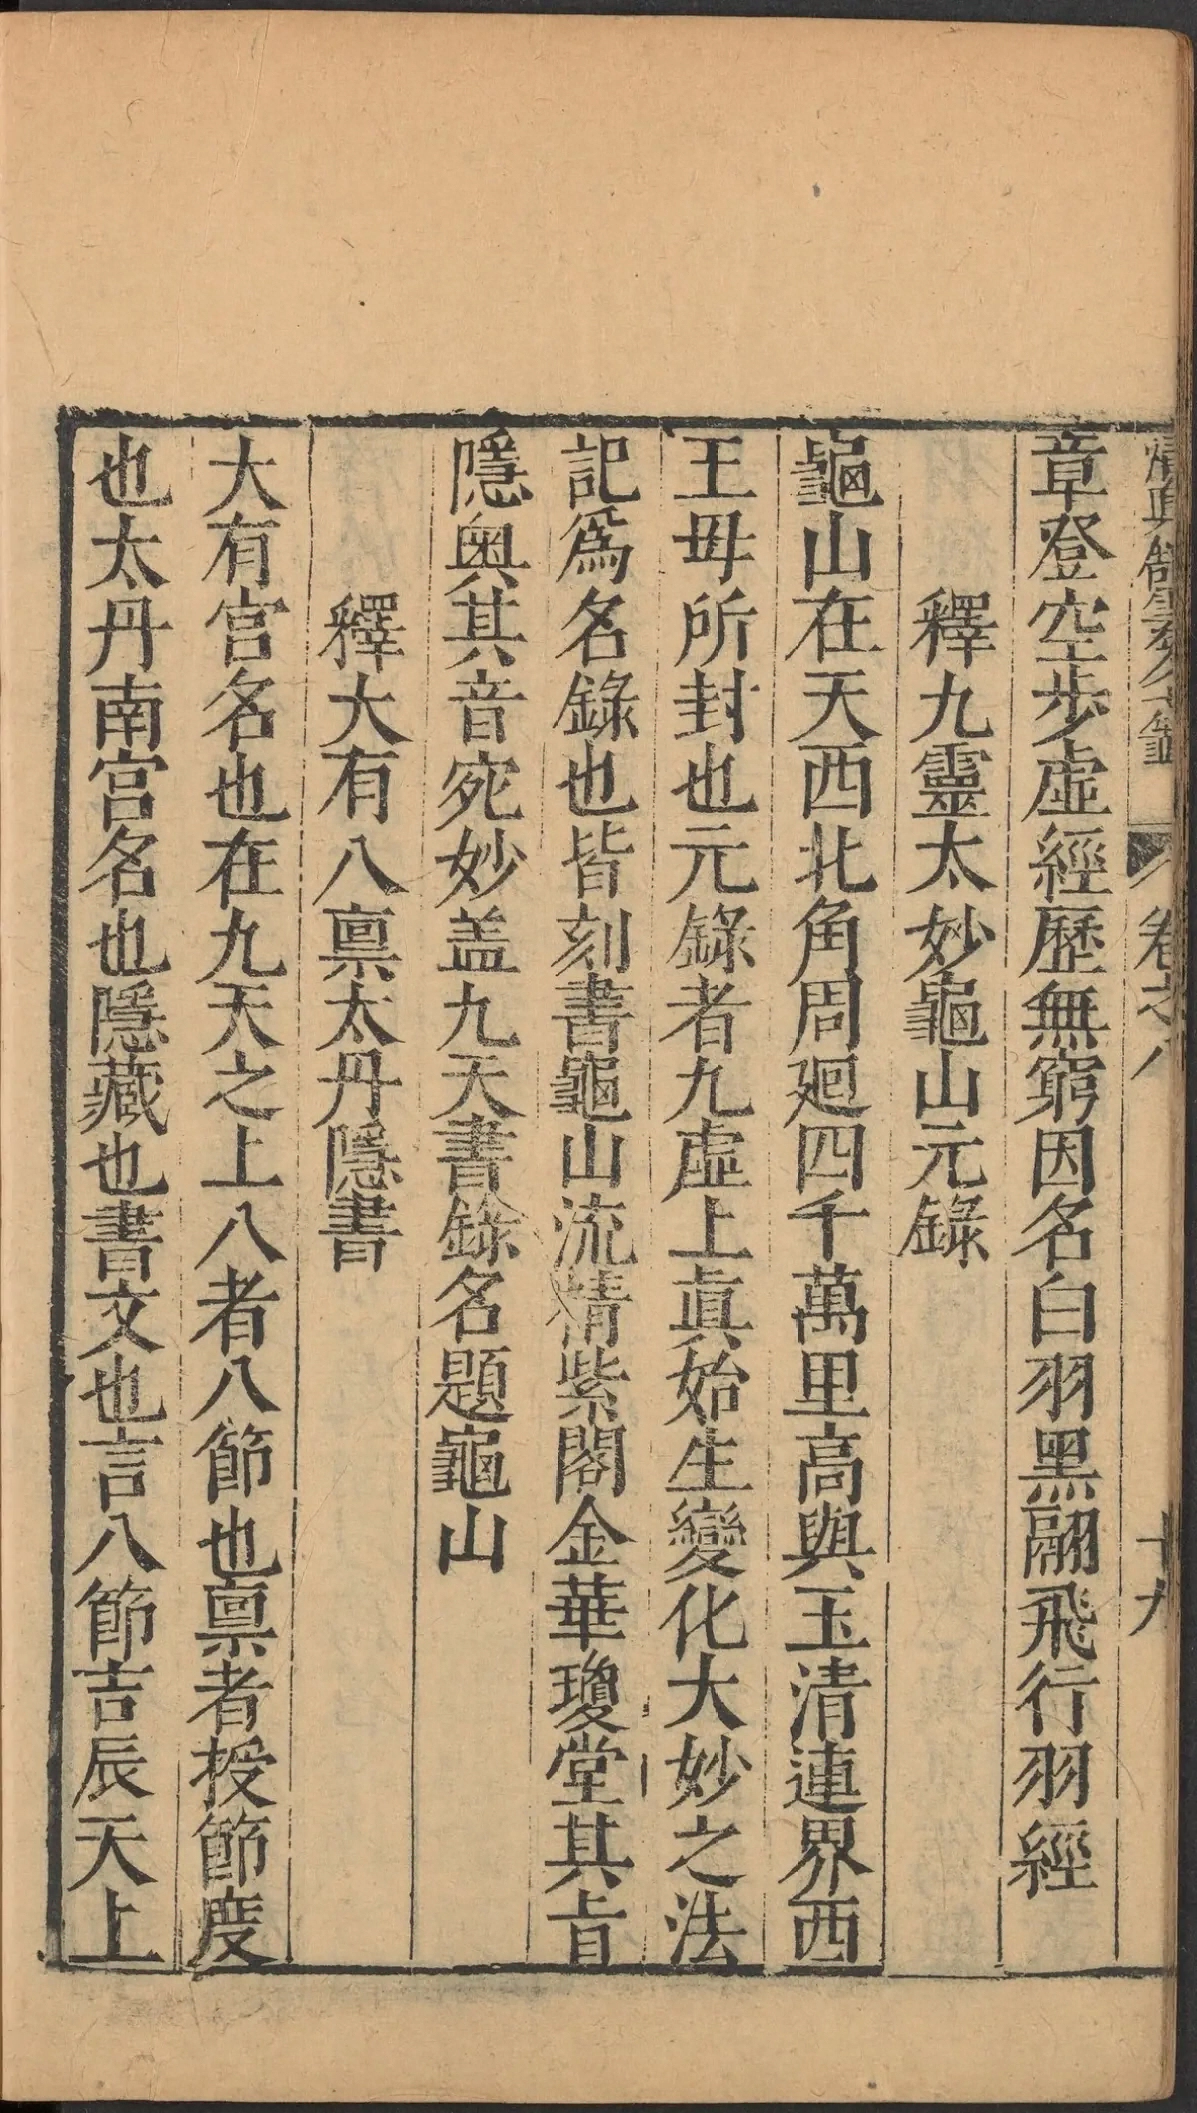 卷之八
十九
章登空步虛經歷無窮因名白羽黑翮飛行羽經
釋九靈太妙龜山元錄
龜山在天西北角周廻四千萬里高與玉清連界西
王母所封也元錄者九虛上眞始生變化大妙之法
記爲名錄也皆刻書龜山流精紫閣金華瓊堂其㫖
隱奥其音宛妙盖九天書錄名題龜山
釋大有八禀太丹隱書
大有宫名也在九天之上八者八節也禀者授節度
也太丹南宫名也隱藏也書文也言八節吉辰天上